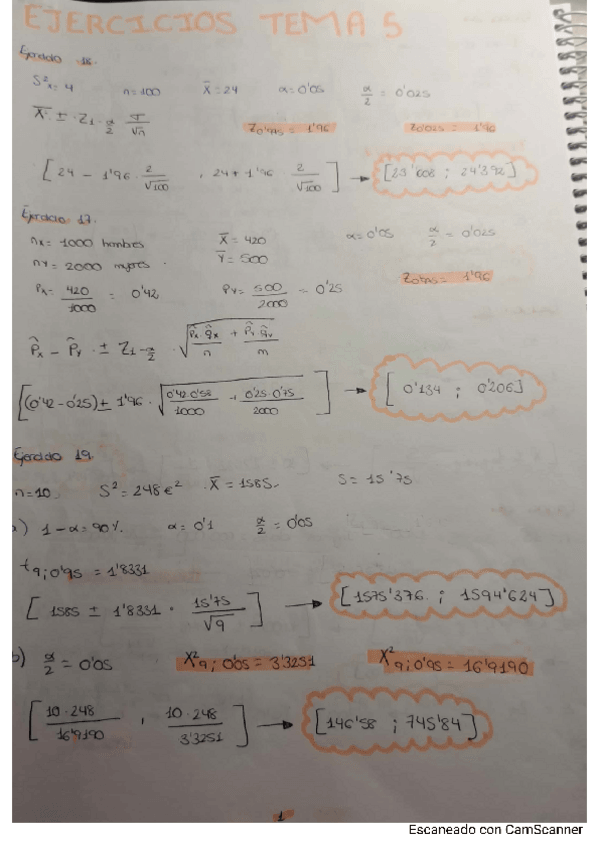 EJERCICIOS TEMA 5
Ejercicio 18.
S²x = 4 n=100 X̄ = 24 α = 0'05 α/2 = 0'025
X̄ ± Z1-α/2 σ/√n Z0'975 = 1'96 Z0'025 = 1'96
[24 - 1'96 · 2/√100 , 24 + 1'96 · 2/√100] → [23'608 ; 24'392]
Ejercicio 17.
nx = 1000 hombres X̄ = 420 α = 0'05 α/2 = 0'025
ny = 2000 mujeres Ȳ = 500
Px = 420/1000 = 0'42 Py = 500/2000 = 0'25 Z0'975 = 1'96
P̂x - P̂y ± Z1-α/2 · √(P̂x q̂x/n + P̂y q̂y/m)
[(0'42 - 0'25) ± 1'96 · √(0'42·0'58/1000 + 0'25·0'75/2000)] → [0'134 ; 0'206]
Ejercicio 19.
n=10. S² = 248€² X̄ = 1585. S = 15'75
a) 1-α = 90%. α = 0'1 α/2 = 0'05
t9;0'95 = 1'8331
[1585 ± 1'8331 · 15'75/√9] → [1575'376 ; 1594'624]
b) α/2 = 0'05 X²9;0'05 = 3'3251 X²9;0'95 = 16'9190
[10·248/16'9190 , 10·248/3'3251] → [146'58 ; 745'84]
1
Escaneado con CamScanner